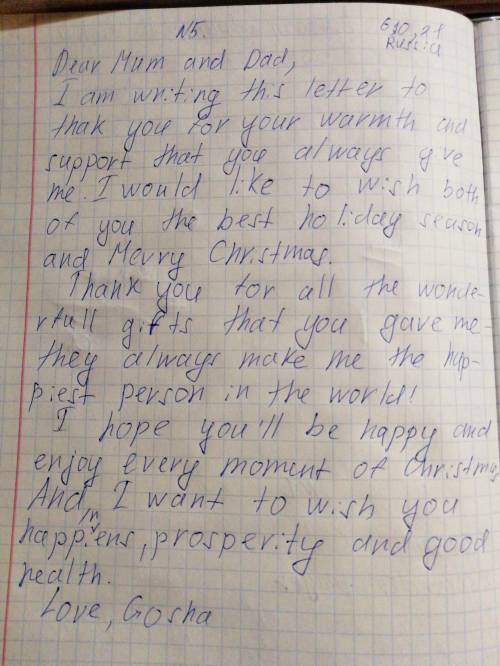 N5.
6.10.21
Russia
Dear Mum and Dad,
I am writing this letter to
thak you for your warmth and
support that you always give
me. I would like to wish both
of you the best holiday season
and Merry Christmas.
Thank you for all the wonde-
rfull gifts that you gave me-
they always make me the hap-
piest person in the world!
I hope you'll be happy and
enjoy every moment of Christmas
And, I want to wish you
happiens, prosperity and good
health.
Love, Gosha